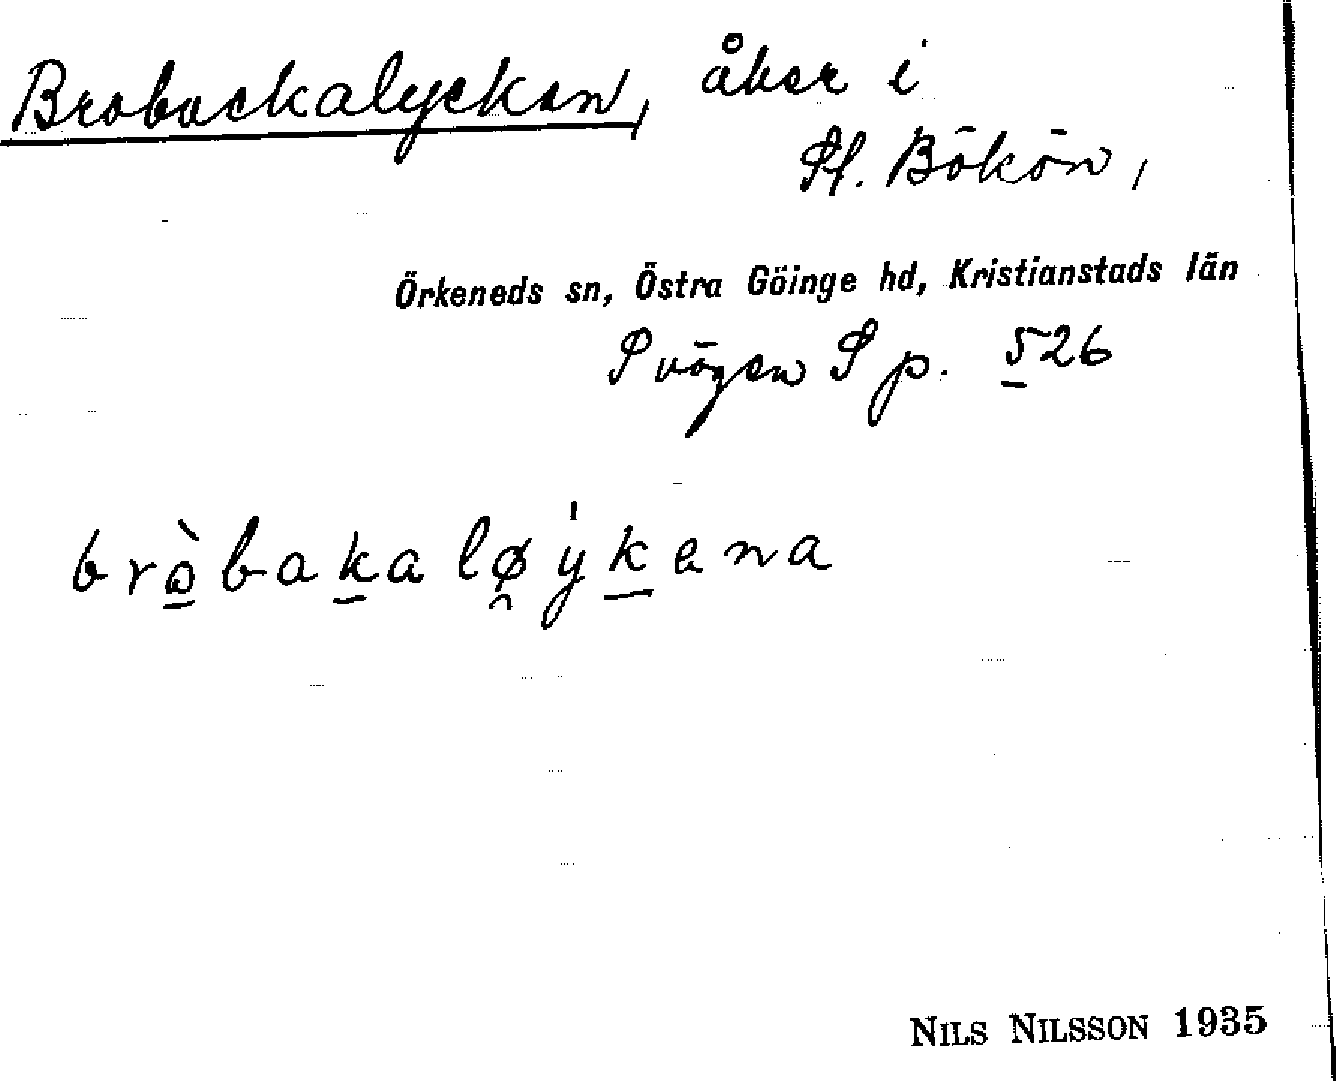 Brobackalyckan, åker i
St. Bökön,
Örkeneds sn, Östra Göinge hd, Kristianstads län
S vägen S p. 526
bròbakaløýkena
NILS NILSSON 1935